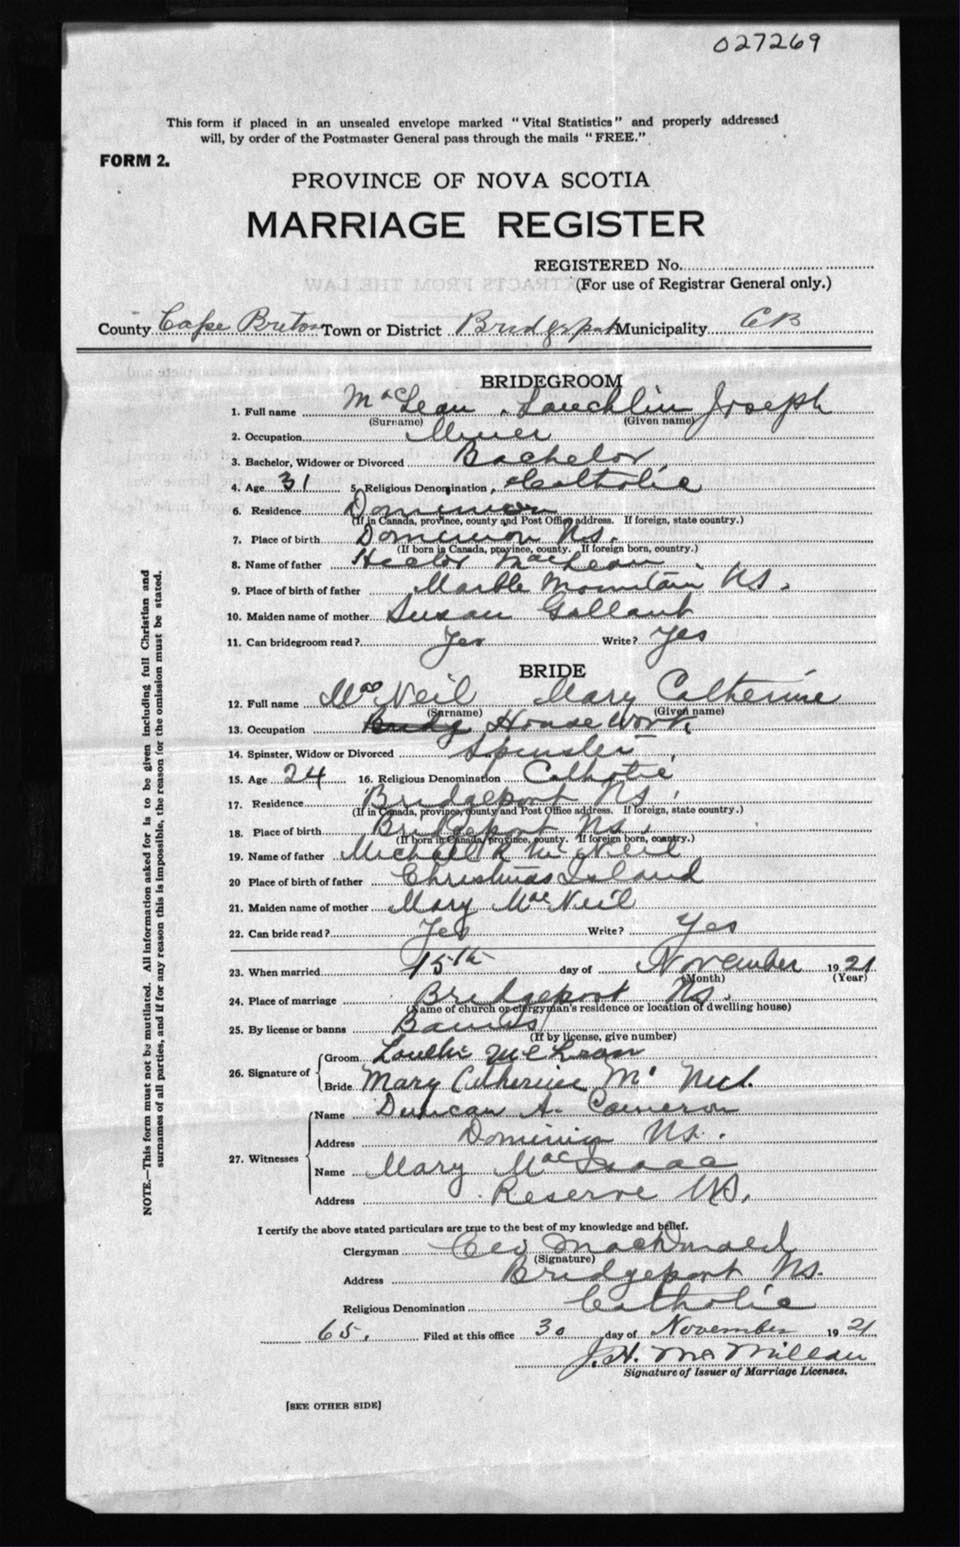 027269
This form if placed in an unsealed envelope marked "Vital Statistics" and properly addressed
will, by order of the Postmaster General pass through the mails "FREE."
FORM 2.
PROVINCE OF NOVA SCOTIA
MARRIAGE REGISTER
REGISTERED No.
(For use of Registrar General only.)
County Cape Breton Town or District Bridgeport Municipality CB
BRIDEGROOM
1. Full name MacLean, Lauchlin Joseph
(Surname) (Given name)
2. Occupation Miner
3. Bachelor, Widower or Divorced Bachelor
4. Age 31 5. Religious Denomination Catholic
6. Residence Dominion
(If in Canada, province, county and Post Office address. If foreign, state country.)
7. Place of birth Dominion N.S.
(If born in Canada, province, county. If foreign born, country.)
8. Name of father Hector MacLean
9. Place of birth of father Marble Mountain NS.
10. Maiden name of mother Susan Gallant
11. Can bridegroom read? Yes Write? Yes
BRIDE
12. Full name MacNeil Mary Catherine
(Surname) (Given name)
13. Occupation House Work
14. Spinster, Widow or Divorced Spinster
15. Age 24 16. Religious Denomination Catholic
17. Residence Bridgeport NS.
(If in Canada, province, county and Post Office address. If foreign, state country.)
18. Place of birth Bridgeport NS.
(If born in Canada, province, county. If foreign born, country.)
19. Name of father Michael R McNeil
20 Place of birth of father Christmas Island
21. Maiden name of mother Mary MacNeil
22. Can bride read? Yes Write? Yes
23. When married 15th day of November 1921
(Month) (Year)
24. Place of marriage Bridgeport NS.
(Name of church or clergyman's residence or location of dwelling house)
25. By license or banns Banns
(If by license, give number)
26. Signature of Groom McLean
Bride Mary Catherine Mc Neil
27. Witnesses Name Duncan A. Cameron
Address Dominion NS.
Name Mary MacIsaac
Address Reserve NS.
I certify the above stated particulars are true to the best of my knowledge and belief.
Clergyman Geo MacDonald
(Signature)
Address Bridgeport NS.
Religious Denomination Catholic
65. Filed at this office 30 day of November 1921
J. H. McMillan
Signature of Issuer of Marriage Licenses.
[SEE OTHER SIDE]
NOTE.—This form must not be mutilated. All information asked for is to be given including full Christian and
surnames of all parties, and if for any reason this is impossible, the reason for the omission must be stated.